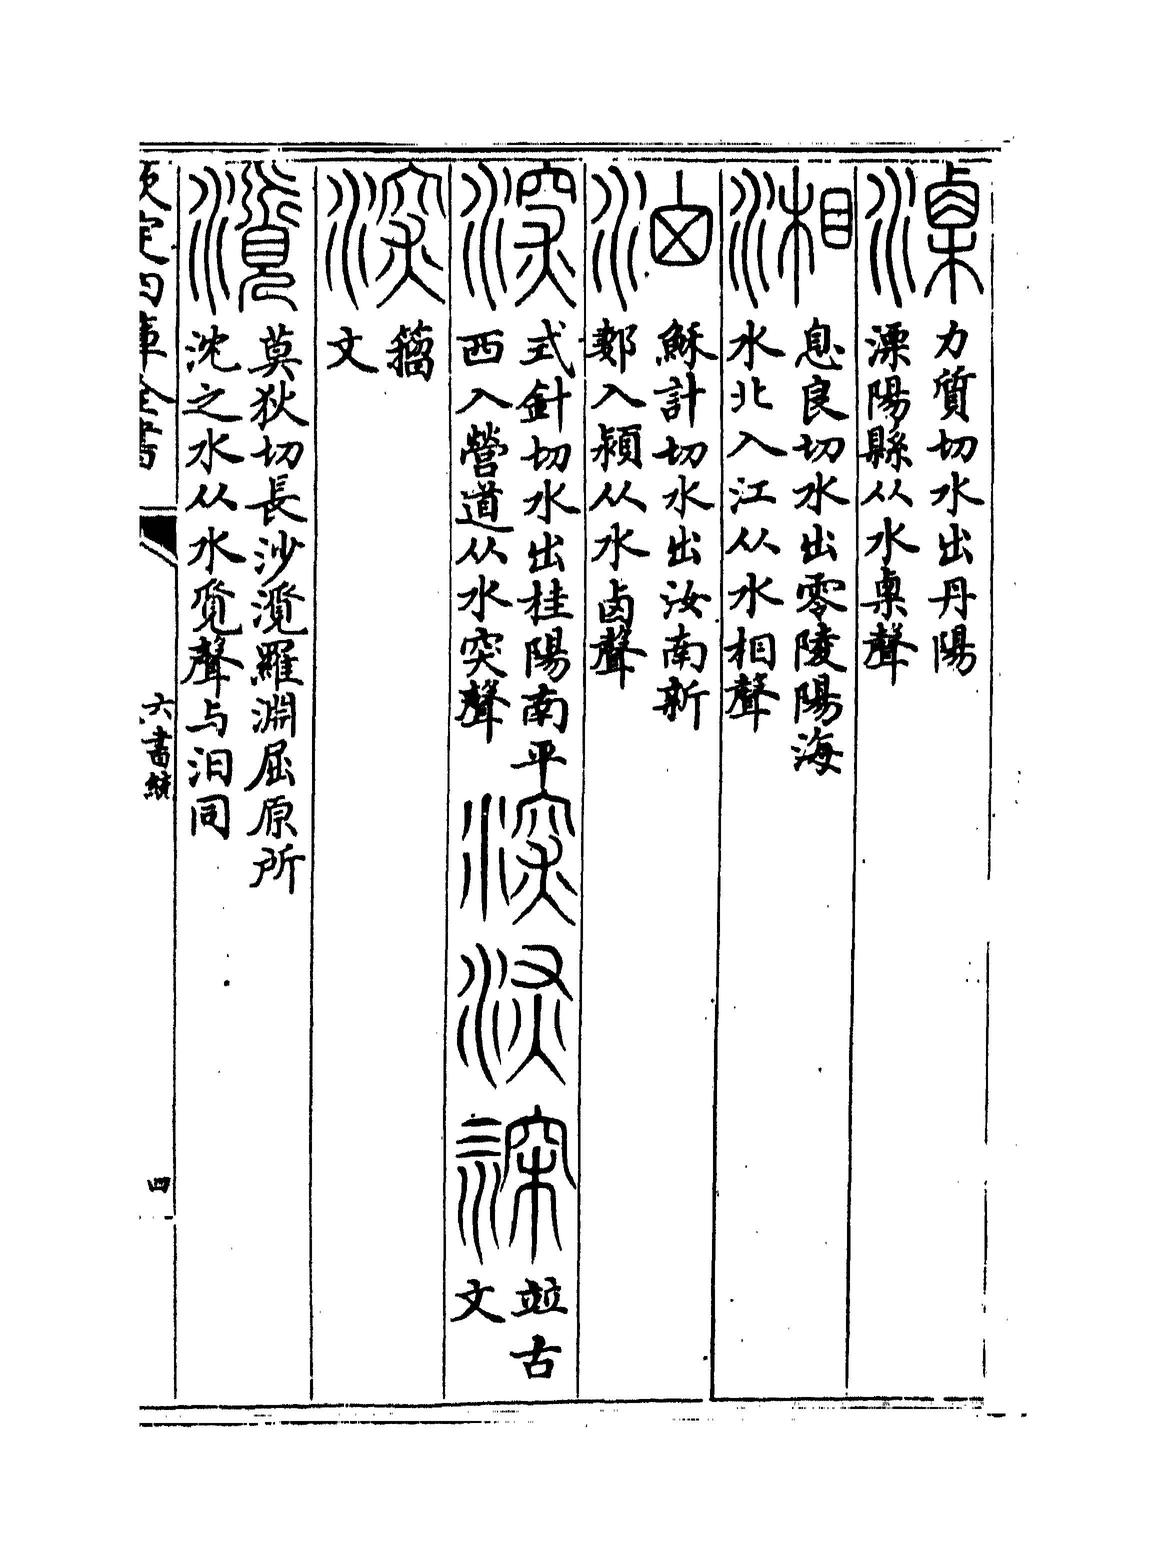 溧
力質切水出丹陽
溧陽縣从水㮚聲
湘
息良切水出零陵陽海
水北入江从水相聲
蘇計切水出汝南新
郪入潁从水卤聲
深
式針切水出桂陽南平
西入營道从水突聲
深
深
深
並古
文
深
籀
文
莫狄切長沙羅淵屈原所
沈之水从水覓聲与汨同
欽定四庫全書
六書統
四